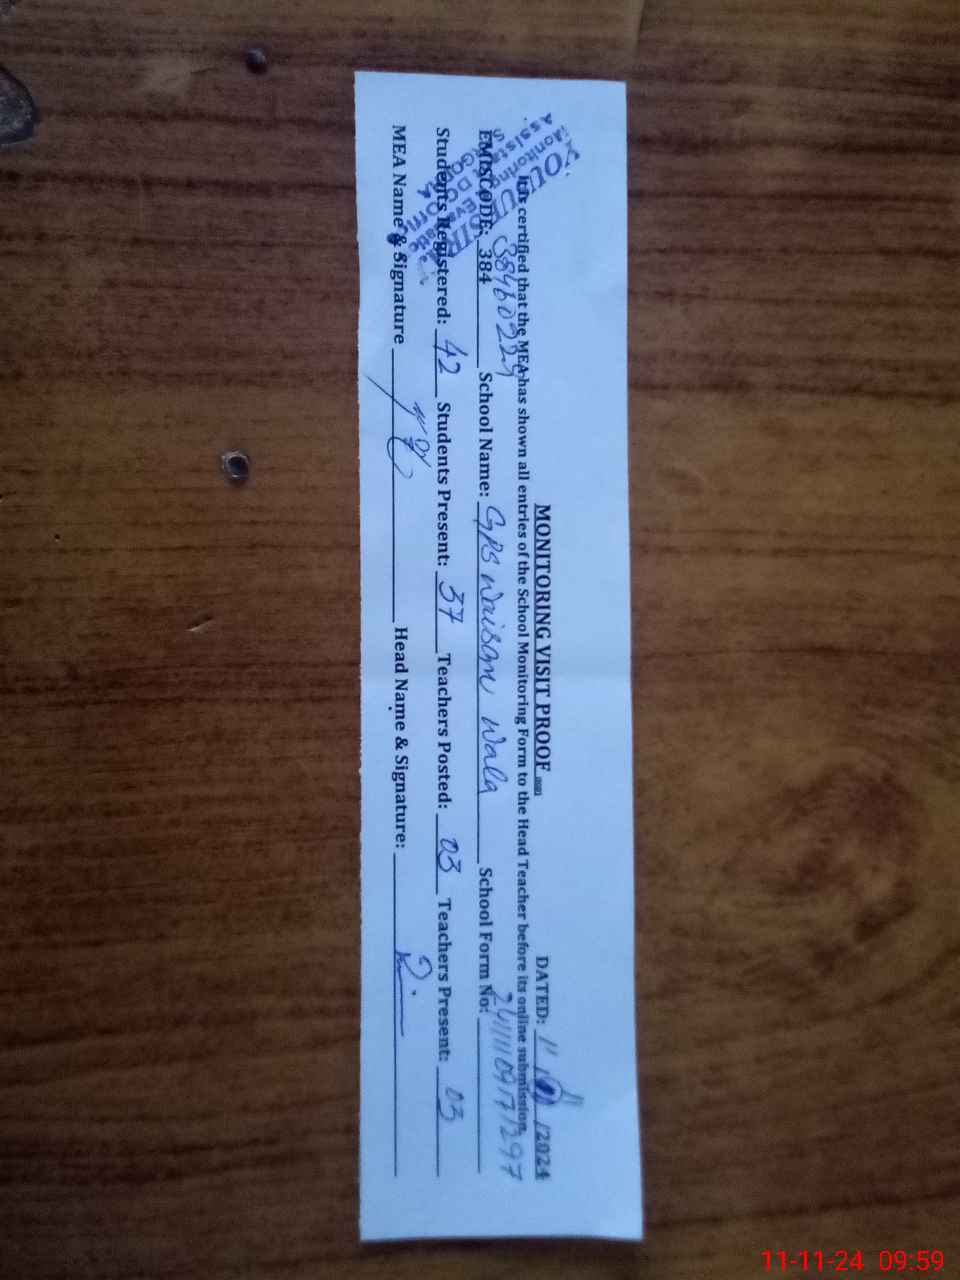 MONITORING VISIT PROOF
DATED: 11/11/2024
It is certified that the MEA has shown all entries of the School Monitoring Form to the Head Teacher before its online submission.
EMISCODE: 38460229 School Name: GPS Waisan Wala School Form No: 2411110917297
384
Students Registered: 42 Students Present: 37 Teachers Posted: 03 Teachers Present: 03
MEA Name & Signature Head Name & Signature:
Monitoring
11-11-24 09:59